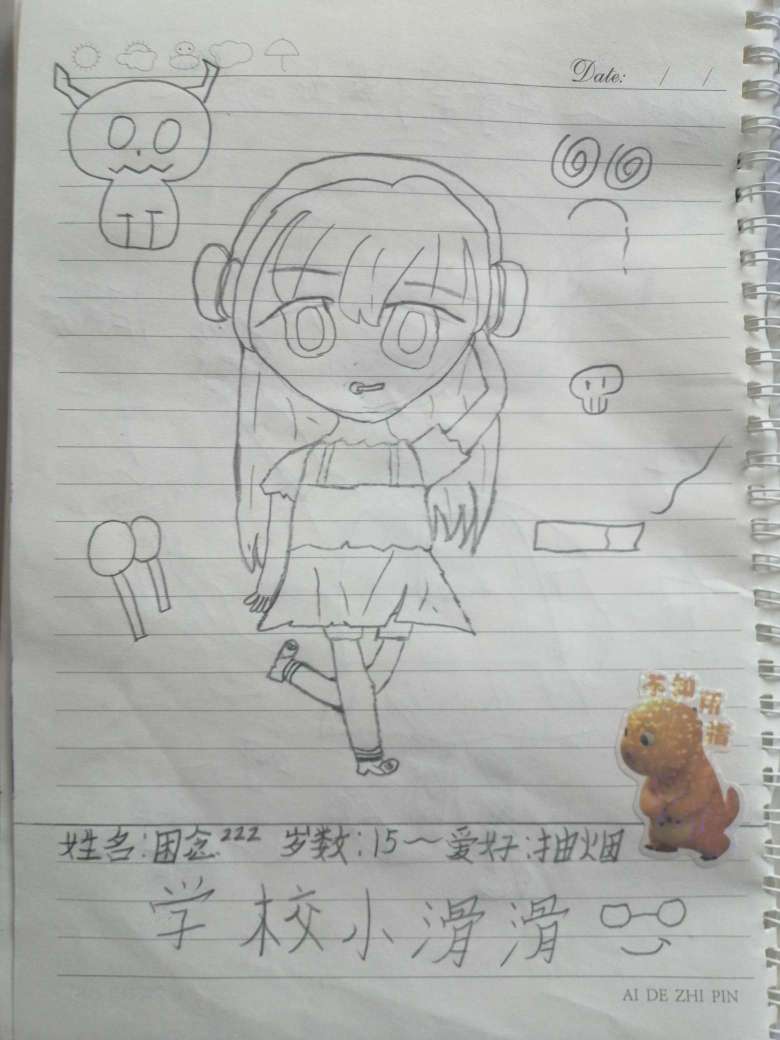 Date: / /
不知所措
姓名:困念²²² 岁数:15~爱好:抽烟
学校小滑滑
AI DE ZHI PIN